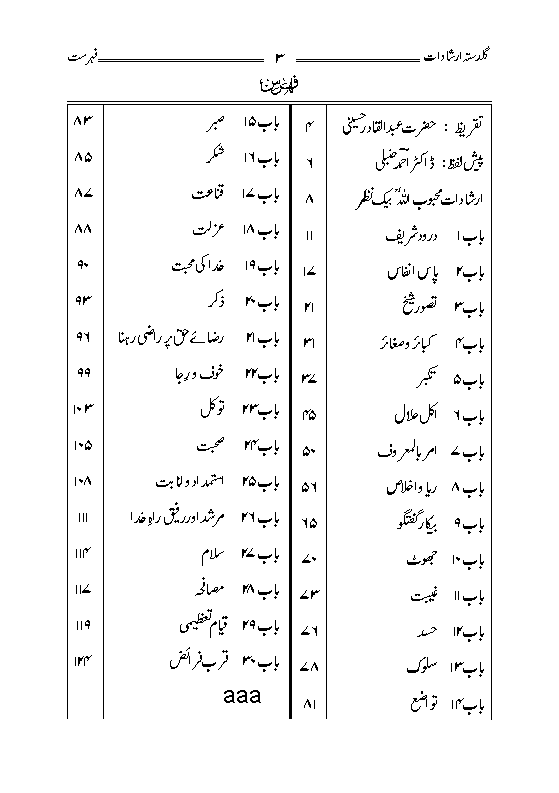 گلدستہ ارشادات ۳ فہرست
فہرست
تقریظ : حضرت عبدالقادر حسینی ۴
پیش لفظ : ڈاکٹر احمد حنبلی ۶
ارشادات محبوب اللہؒ بیک نظر ۸
باب۱ درود شریف ۱۱
باب۲ پاس انفاس ۱۷
باب۳ تصور شیخ ۲۱
باب۴ کبائر و صغائر ۳۱
باب۵ تکبر ۳۷
باب۶ اکل حلال ۴۵
باب۷ امر بالمعروف ۵۰
باب۸ ریا و اخلاص ۵۶
باب۹ بیکار گفتگو ۶۵
باب۱۰ جھوٹ ۷۰
باب۱۱ غیبت ۷۳
باب۱۲ حسد ۷۶
باب۱۳ سلوک ۷۸
باب۱۴ تواضع ۸۱
باب۱۵ صبر ۸۳
باب۱۶ شکر ۸۵
باب۱۷ قناعت ۸۷
باب۱۸ عزلت ۸۸
باب۱۹ خدا کی محبت ۹۰
باب۲۰ ذکر ۹۳
باب۲۱ رضائے حق پر راضی رہنا ۹۶
باب۲۲ خوف و رجا ۹۹
باب۲۳ توکل ۱۰۳
باب۲۴ صحبت ۱۰۵
باب۲۵ استمداد و انابت ۱۰۸
باب۲۶ مرشد اور رفیق راہِ خدا ۱۱۱
باب۲۷ سلام ۱۱۴
باب۲۸ مصافحہ ۱۱۷
باب۲۹ قیام تعظیمی ۱۱۹
باب۳۰ قرب فرائض ۱۲۴
aaa